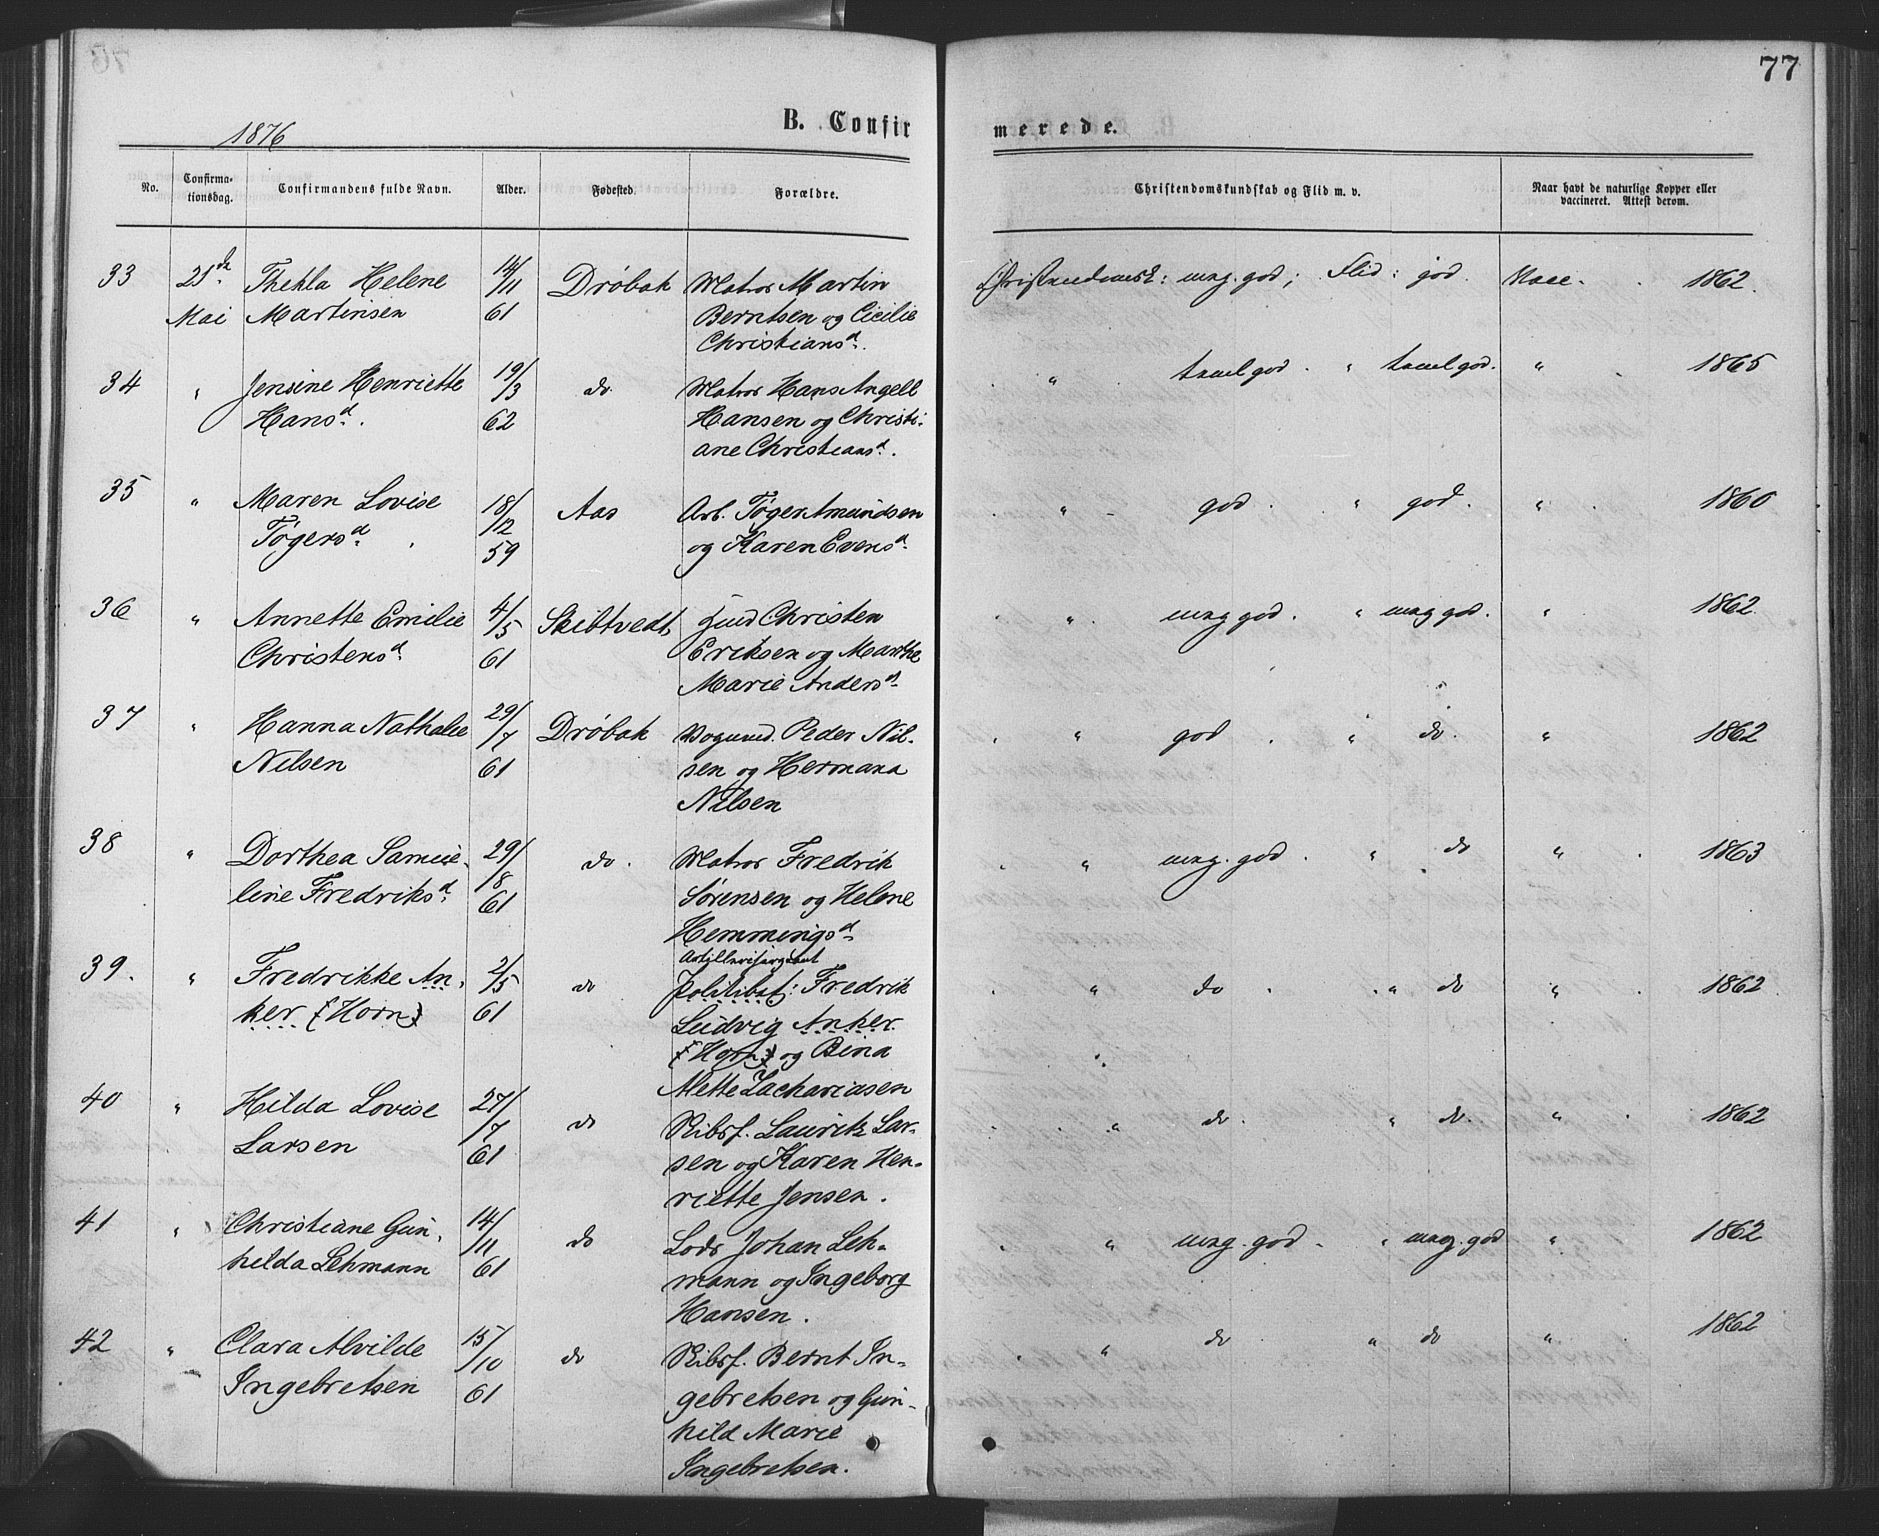 77
1876
B. Confir merede.
No. Confirmationsdag. Confirmandens fulde Navn. Alder. Fødested. Forældre. Christendomskundskab og Flid m. v. Naar havt de naturlige Kopper eller vaccineret. Attest derom.
33 21de Mai Thekla Helene Martinsen 14/11 61 Drøbak Matros Martin Berntsen og Cicilie Christiansd. Christendomsk: meg. god; Flid: god. Vacc. 1862.
34 " Jensine Henriette Hansd. 19/3 62 do Matros Hans Angell Hansen og Christiane Christiansd. " temel god. " temel god. " 1865
35 " Maren Lovise Tøgersd. 18/12 59 Aas Arb. Tøger Amundsen og Karen Evensd. " god. " god. " 1860
36 " Annette Emilie Christensd. 4/5 61 Skibtvedt Christen Eriksen og Marthe Marie Andersd. " meg god. " meg god. " 1862
37 " Hanna Nathalie Nilsen 29/7 61 Drøbak Peder Nilsen og Hermana Nilsen " god. " do. " 1862
38 " Dorthea Samueline Fredriksd. 29/8 61 do. Matros Fredrik Sørensen og Helene Hemmingsd. " meg. god. " do " 1863
39. " Fredrikke Anker (Horn) 2/5 61 do Artillerisergeant Politibetj: Fredrik Ludvig Anker (Horn) og Bina Mette Zachariasen " do. " do " 1862
40 " Hilda Lovise Larsen 27/7 61 do Skibsf. Lauritz Larsen og Karen Henriette Jensen. " do. " do. " 1862
41 " Christiane Gunhilda Lehmann 14/11 61 do Lods Johan Lehmann og Ingeborg Hansen. " meg. god. " meg. god " 1862
42 " Clara Alvilde Ingebretsen 15/10 61 do Skibsf. Bernt Ingebretsen og Gunhild Marie Ingebretsen. " do " do " 1862